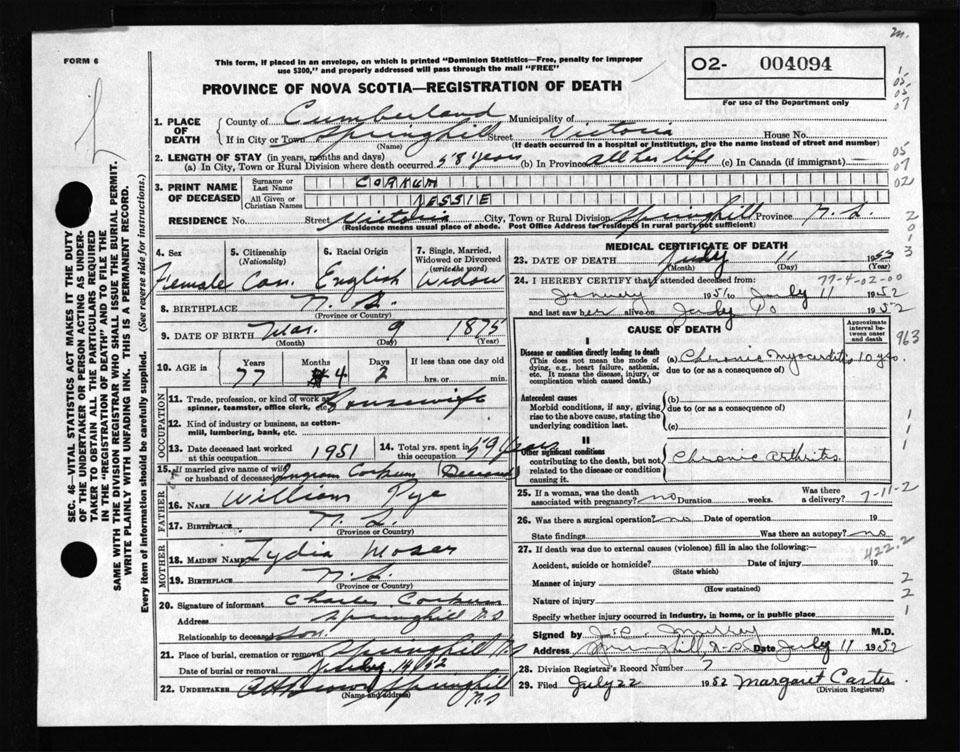 FORM 6
This form, if placed in an envelope, on which is printed "Dominion Statistics—Free, penalty for improper
use $300," and properly addressed will pass through the mail "FREE"
O2- 004094
For use of the Department only
PROVINCE OF NOVA SCOTIA—REGISTRATION OF DEATH
1. PLACE OF DEATH
County of Cumberland Municipality of
If in City or Town Springhill Street Victoria House No.
(Name) (If death occurred in a hospital or institution, give the name instead of street and number)
2. LENGTH OF STAY (in years, months and days)
(a) In City, Town or Rural Division where death occurred 58 years (b) In Province all her life (c) In Canada (if immigrant) —
3. PRINT NAME OF DECEASED
Surname or Last Name CORKUM
All Given or Christian Names JESSIE
RESIDENCE No. Street Victoria City, Town or Rural Division Springhill Province N.S.
(Residence means usual place of abode. Post Office Address for residents in rural parts not sufficient)
4. Sex Female
5. Citizenship (Nationality) Can.
6. Racial Origin English
7. Single, Married, Widowed or Divorced (write the word) Widow
8. BIRTHPLACE N.S.
(Province or Country)
9. DATE OF BIRTH Mar. 9 1875
(Month) (Day) (Year)
10. AGE in Years 77 Months 4 Days 2 If less than one day old hrs. or min.
OCCUPATION
11. Trade, profession, or kind of work as spinner, teamster, office clerk, etc. Housewife
12. Kind of industry or business, as cotton-mill, lumbering, bank, etc.
13. Date deceased last worked at this occupation 1951
14. Total yrs. spent in this occupation 59 years
15. If married give name of wife or husband of deceased Ingram Corkum (Deceased)
FATHER
16. NAME William Pye
17. BIRTHPLACE N.S.
(Province or Country)
MOTHER
18. MAIDEN NAME Lydia Moser
19. BIRTHPLACE N.S.
(Province or Country)
20. Signature of informant Charles Corkum
Address Springhill N.S
Relationship to deceased son.
21. Place of burial, cremation or removal Springhill N.S
Date of burial or removal July 14/52
22. UNDERTAKER Brown Springhill N.S
(Name and address)
MEDICAL CERTIFICATE OF DEATH
23. DATE OF DEATH July 11 1952
(Month) (Day) (Year)
77-4-02-00
24. I HEREBY CERTIFY that I attended deceased from:
January 1951 to July 11 1952
and last saw her alive on July 10 1952
CAUSE OF DEATH
Approximate interval between onset and death
I
Disease or condition directly leading to death
(This does not mean the mode of dying, e.g., heart failure, asthenia, etc. It means the disease, injury, or complication which caused death.)
(a) Chronic Myocarditis 10 yrs.
due to (or as a consequence of)
Antecedent causes
Morbid conditions, if any, giving rise to the above cause, stating the underlying condition last.
(b)
due to (or as a consequence of)
(c)
II
Other significant conditions
contributing to the death, but not related to the disease or condition causing it.
Chronic Arthritis
25. If a woman, was the death associated with pregnancy? no Duration weeks. Was there a delivery? 7-11-2
26. Was there a surgical operation? no Date of operation 19
State findings Was there an autopsy? no
27. If death was due to external causes (violence) fill in also the following:—
422.2
Accident, suicide or homicide? Date of injury 19
(State which)
Manner of injury
(How sustained)
Nature of injury
Specify whether injury occurred in industry, in home, or in public place
Signed by Murray M.D.
Address Springhill, N.S. Date July 11 1952
28. Division Registrar's Record Number 7
29. Filed July 22 1952 Margaret Carter
(Division Registrar)
963
SEC. 46—VITAL STATISTICS ACT MAKES IT THE DUTY
OF THE UNDERTAKER OR PERSON ACTING AS UNDER-
TAKER TO OBTAIN ALL THE PARTICULARS REQUIRED
IN THE "REGISTRATION OF DEATH" AND TO FILE THE
SAME WITH THE DIVISION REGISTRAR WHO SHALL ISSUE THE BURIAL PERMIT.
WRITE PLAINLY WITH UNFADING INK. THIS IS A PERMANENT RECORD.
Every item of information should be carefully supplied. (See reverse side for instructions.)